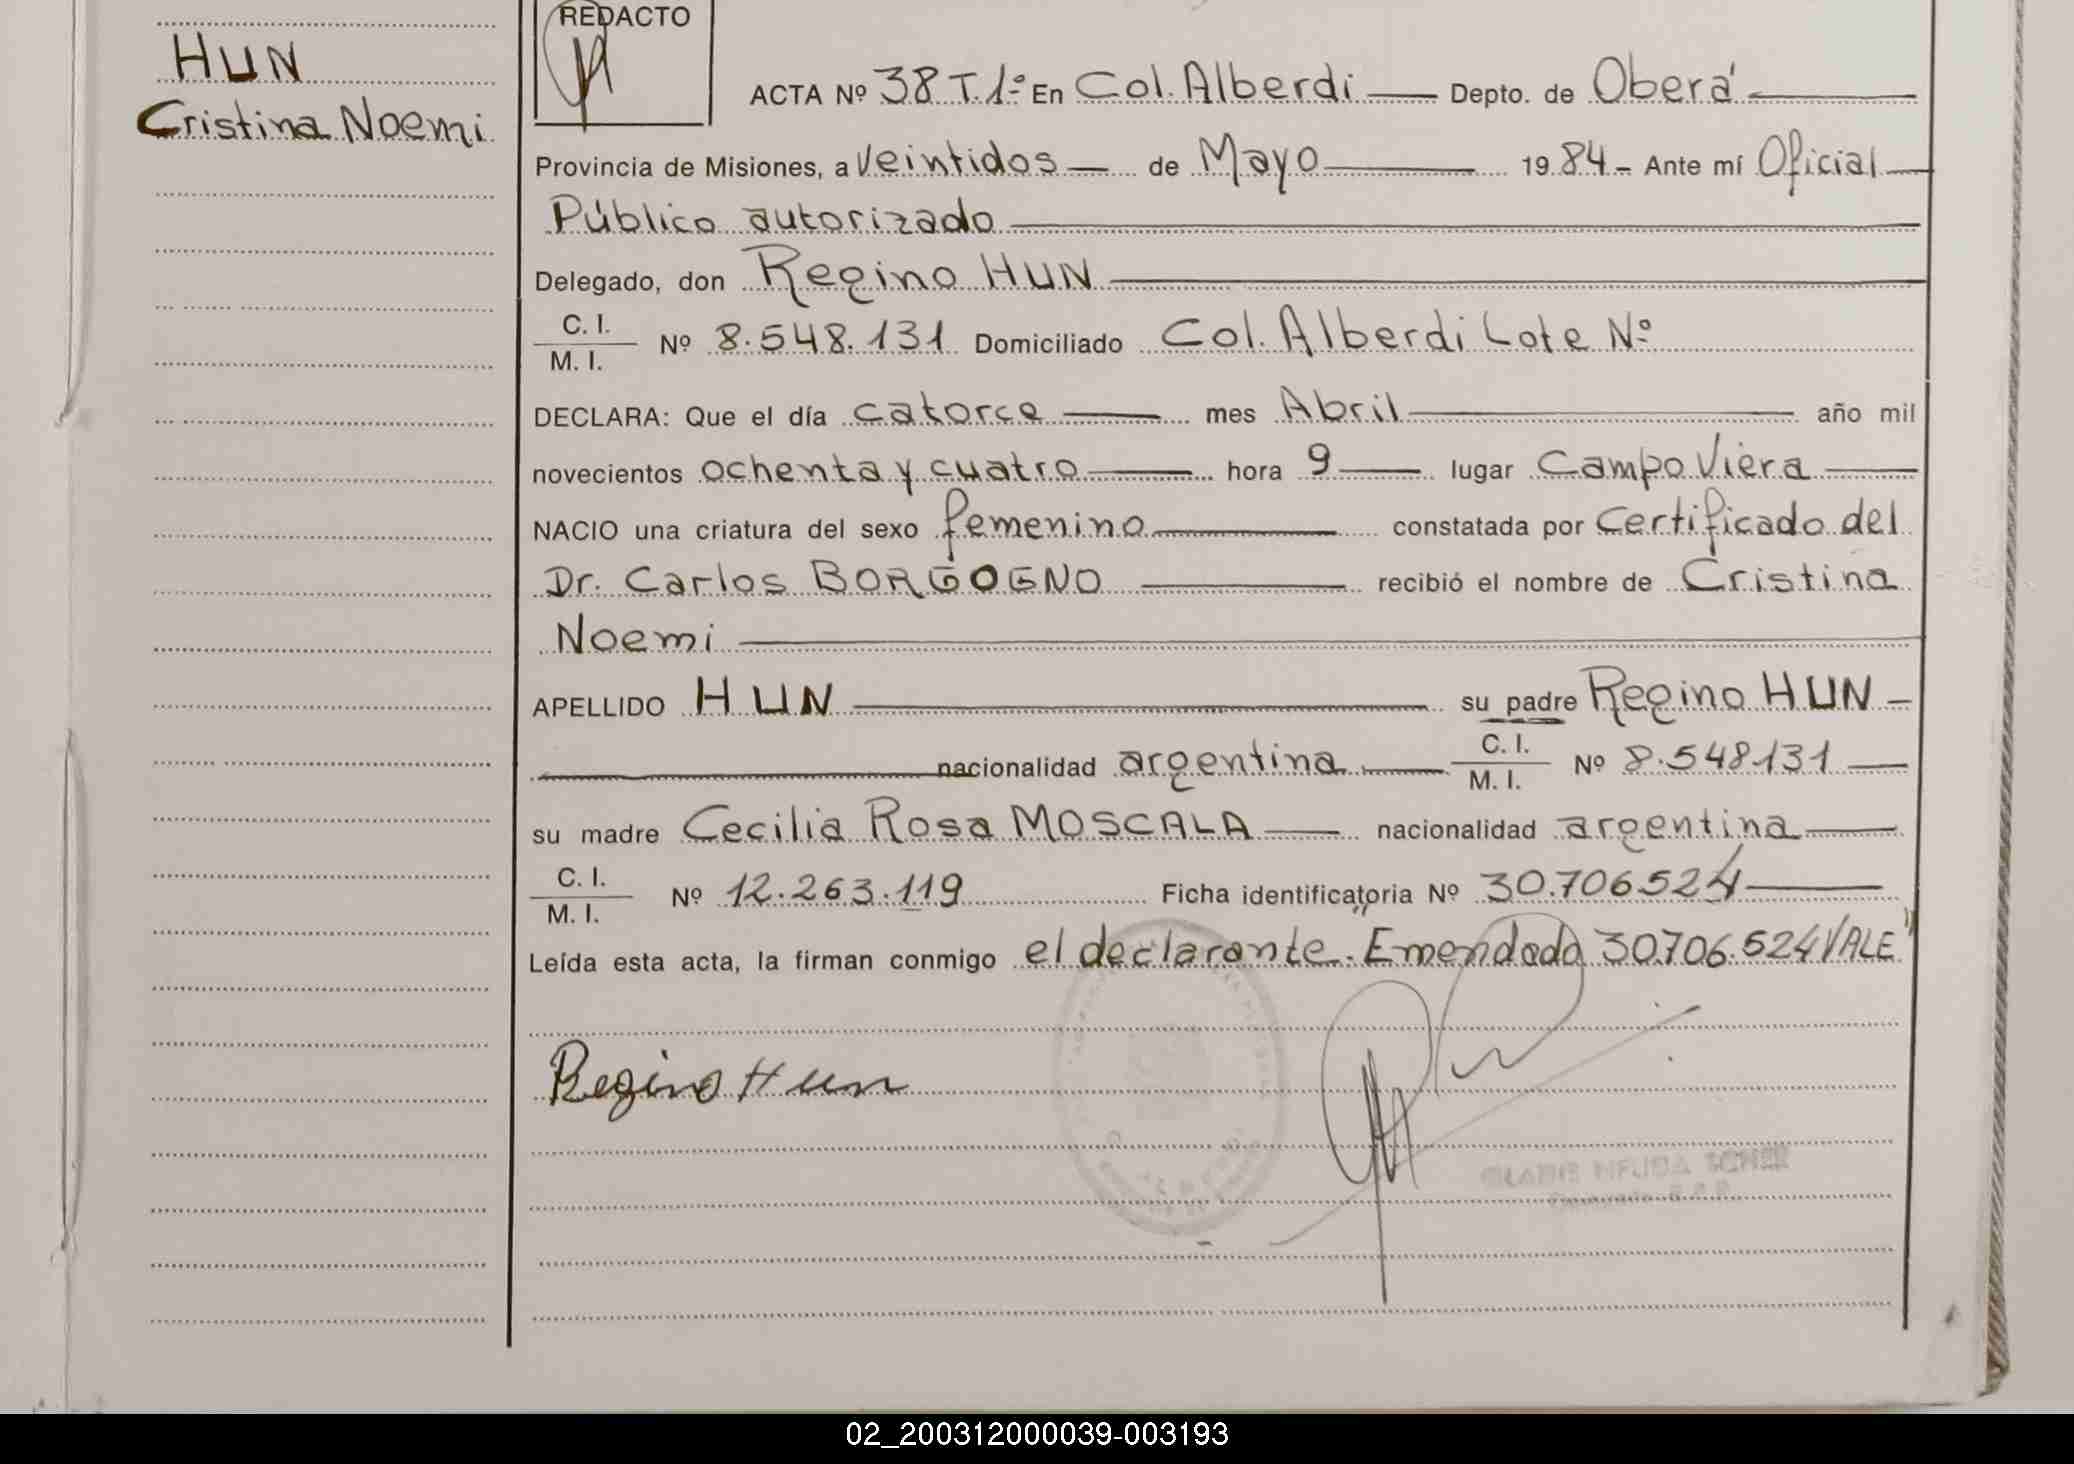 HUN
Cristina Noemi
REDACTO
ACTA Nº 38 T. 1º En Col. Alberdi Depto. de Oberá
Provincia de Misiones, a veintidos de Mayo 1984 - Ante mí Oficial
Público autorizado
Delegado, don Regino HUN
C. I.
M. I. Nº 8.548.131 Domiciliado Col. Alberdi Lote Nº
DECLARA: Que el día catorce mes Abril año mil
novecientos ochenta y cuatro hora 9 lugar Campo Viera
NACIO una criatura del sexo femenino constatada por Certificado del
Dr. Carlos BORGOGNO recibió el nombre de Cristina
Noemi
APELLIDO HUN su padre Regino HUN -
nacionalidad argentina C. I.
M. I. Nº 8.548131
su madre Cecilia Rosa MOSCALA nacionalidad argentina
C. I.
M. I. Nº 12.263.119 Ficha identificatoria Nº 30.706524
Leída esta acta, la firman conmigo el declarante. "Emendado 30.706.524 VALE"
Regino Hun
02_200312000039-003193